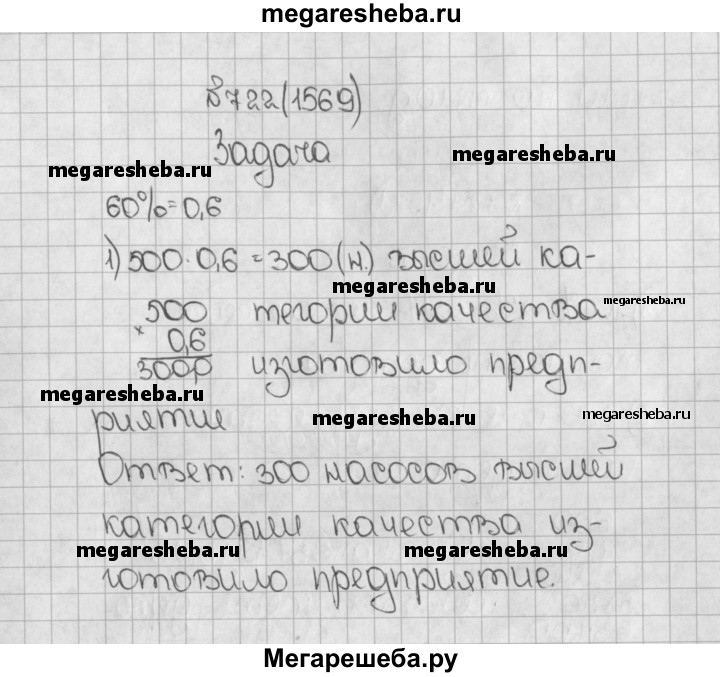 megaresheba.ru
№722(1569)
Задача
megaresheba.ru
megaresheba.ru
60%=0,6
1) 500·0,6=300(н.) высшей ка-
megaresheba.ru
500 тегории качества
megaresheba.ru
× 0,6
300,0 изготовило предп-
megaresheba.ru
megaresheba.ru
megaresheba.ru
риятие
Ответ: 300 насосов высшей
категории качества из-
megaresheba.ru
megaresheba.ru
готовило предприятие.
Мегарешеба.ру